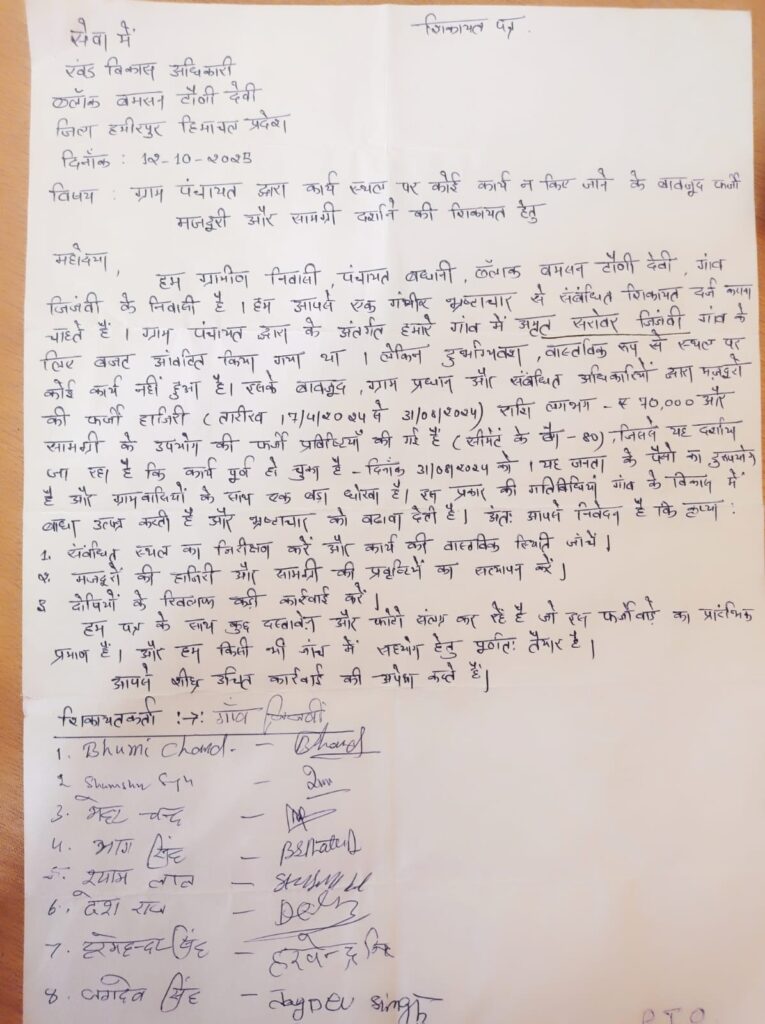 शिकायत पत्र
सेवा में
खंड विकास अधिकारी
ब्लॉक बमसन टौणी देवी
जिला हमीरपुर हिमाचल प्रदेश
दिनाँक : 12-10-2025
विषय : ग्राम पंचायत द्वारा कार्य स्थल पर कोई कार्य न किए जाने के बावजूद फर्जी
मजदूरी और सामग्री दर्शाने की शिकायत हेतु
महोदया,
हम ग्रामीण निवासी, पंचायत बधानी, ब्लॉक बमसन टौणी देवी, गांव
जिजंवी के निवासी है। हम आपसे एक गंभीर भ्रष्टाचार से संबंधित शिकायत दर्ज कराना
चाहते हैं। ग्राम पंचायत द्वारा के अंतर्गत हमारे गांव में अमृत सरोवर जिजंवी गांव के
लिए बजट आंवटित किया गया था। लेकिन दुर्भाग्यवश, वास्तविक रूप से स्थल पर
कोई कार्य नहीं हुआ है। इसके बावजूद, ग्राम प्रधान और संबंधित अधिकारियों द्वारा मजदूरो
की फर्जी हाजिरी (तारीख 17/4/2024 से 31/08/2024) राशि लगभग - ₹ 70,000 और
सामग्री के उपयोग की फर्जी प्रविष्टियाँ की गई हैं (सीमेंट के बैग - 80), जिससे यह दर्शाया
जा रहा है कि कार्य पूर्ण हो चुका है - दिनाँक 31/08/2024 को। यह जनता के पैसो का दुरुपयोग
है और ग्रामवासियों के साथ एक बड़ा धोखा है। इस प्रकार की गतिविधियां गांव के विकास में
बाधा उत्पन्न करती है और भ्रष्टाचार को बढावा देती है। अंतः आपसे निवेदन है कि कृप्या :
1. संबंधित स्थल का निरीक्षण करें और कार्य की वास्तविक स्थिति जाँचें।
2. मजदूरों की हाजिरी और सामग्री की प्रवृष्टियों का सत्यापन करें।
3 दोषियों के खिलाफ कड़ी कार्रवाई करें।
हम पत्र के साथ कुछ दस्तावेज और फोटो संलग्न कर रहें है जो इस फर्जीवाड़े का प्रारंभिक
प्रमाण हैं। और हम किसी भी जांच में सहयोग हेतु पूर्णतः तैयार है।
आपसे शीघ्र उचित कार्रवाई की अपेक्षा करते हैं।
शिकायतकर्ता :→: गाँव जिजवीं
1. Bhumi Chand. -
2 Shamsher -
3. मेहर चन्द -
4. भाग सिंह -
5. श्याम लाल -
6. देश राज -
7. सिंह - हरवेन्द्र सिंह
8. जगदेव सिंह - Jagdev Singh
P.T.O.